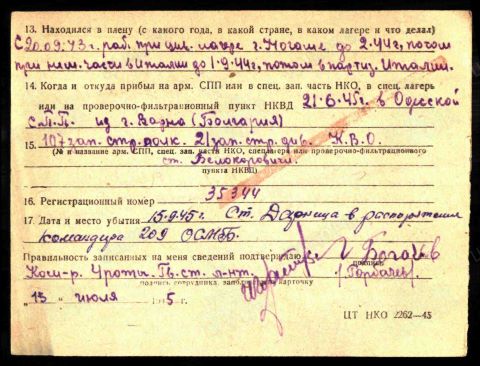 13. Находился в плену (с какого года, в какой стране, в каком лагере и что делал)
С 20.09.43г. раб. при цив. лагере г. до 2.44г, потом
при нем. части в Италии до 1.9.44г, потом в партиз. Италии.
14. Когда и откуда прибыл на арм. СПП или в спец. зап. часть НКО, в спец. лагерь
или на проверочно-фильтрационный пункт НКВД 21.6.45г. в Одесской
С.П.П. из г. Варна (Болгария)
15. 107 зап. стр. полк. 21 зап. стр. див. К.В.О.
(№ и название арм. СПП, спец. зап. часть НКО, спецлагеря или проверочно-фильтрационного
ст. Белокоровичи.
пункта НКВД)
16. Регистрационный номер 35344
17. Дата и место убытия 15.9.45г. Ст. Дарница в распоряжение
командира 209 ОСМБ.
Правильность записанных на меня сведений подтверждаю
подпись
Ком-р роты Гв. ст. л-нт.
/Горбачев/
должность, подпись сотрудника, заполнявшего карточку
„15" июля 1945 г.
ЦТ НКО 2262—45